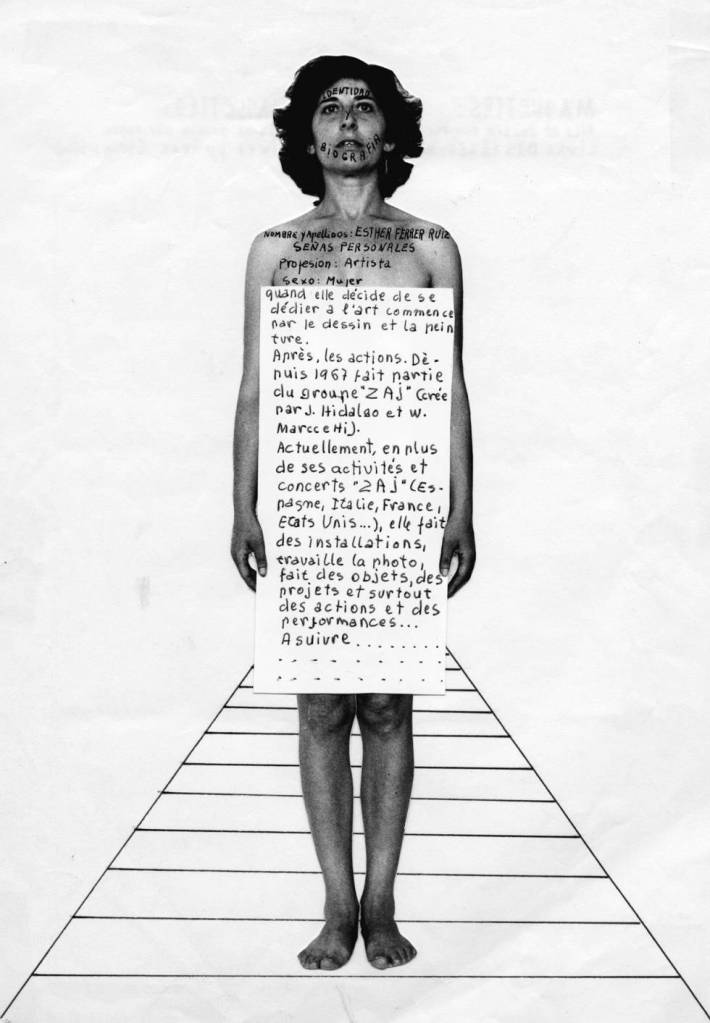 IDENTIDAD
Y
BIOGRAFIA
NOMBRE y Apellidos: ESTHER FERRER RUIZ
SEÑAS PERSONALES
Profesion: Artista
Sexo: Mujer
quand elle décide de se
dédier a l'art commence
par le dessin et la pein
ture.
Après, les actions. Dè-
puis 1967 fait partie
du groupe "ZAJ" (crée
par J. Hidalgo et W.
Marccehi).
Actuellement, en plus
de ses activités et
concerts "ZAJ" (Es-
pagne, Italie, France,
Etats Unis...), elle fait
des installations,
travaille la photo,
fait des objets, des
projets et surtout
des actions et des
performances...
A suivre ........